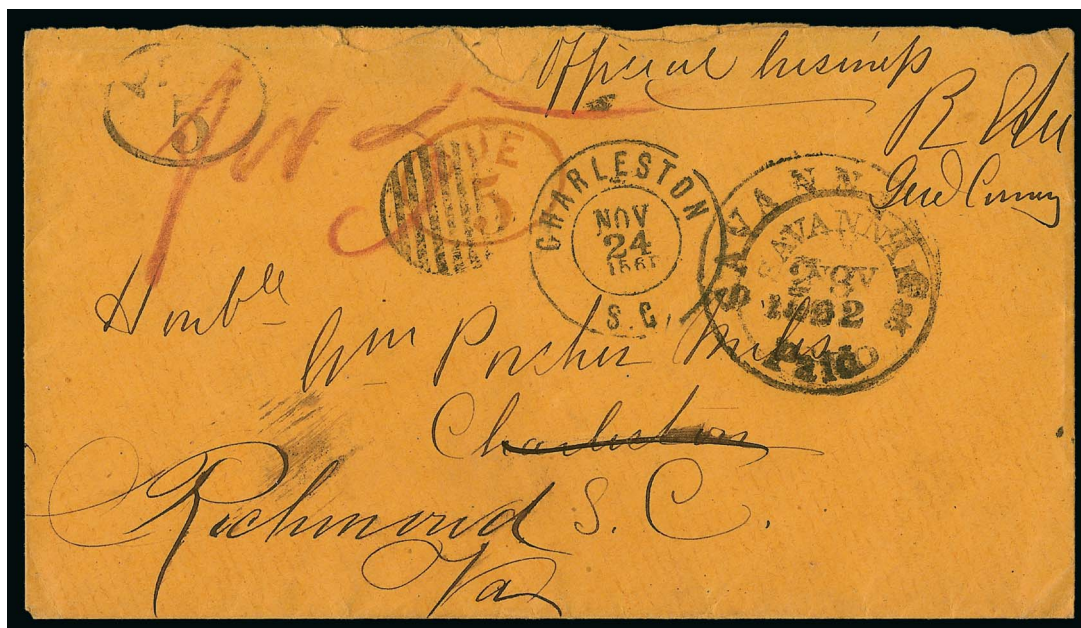 Official business
R E Lee
Genl Comg
5
DUE
5
CHARLESTON
NOV
24
S.C.
SAVANNAH
SAVANNAH
NOV
1862
Paid
Honble
Wm Porcher Miles
Charleston
S. C.
Richmond
Va